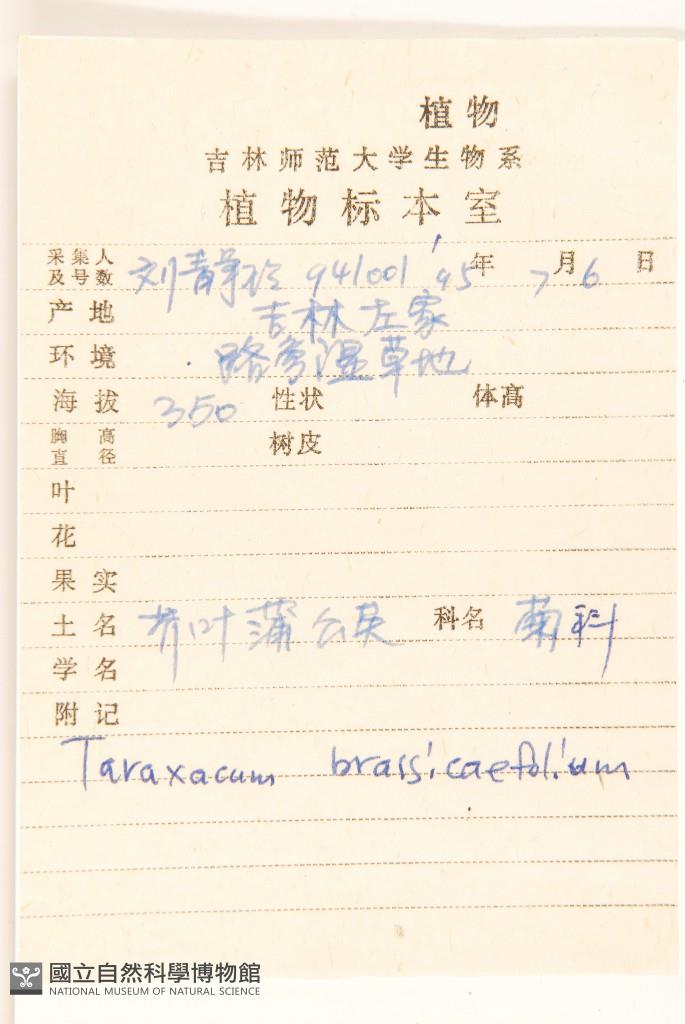 植物
吉林师范大学生物系
植物标本室
采集人及号数 刘青 941001 '95年 7月6日
产地 吉林左家
环境 路旁湿草地
海拔 350 性状 体高
胸高直径 树皮
叶
花
果实
土名 芥叶蒲公英 科名 菊科
学名
附记
Taraxacum brassicaefolium
國立自然科學博物館
NATIONAL MUSEUM OF NATURAL SCIENCE